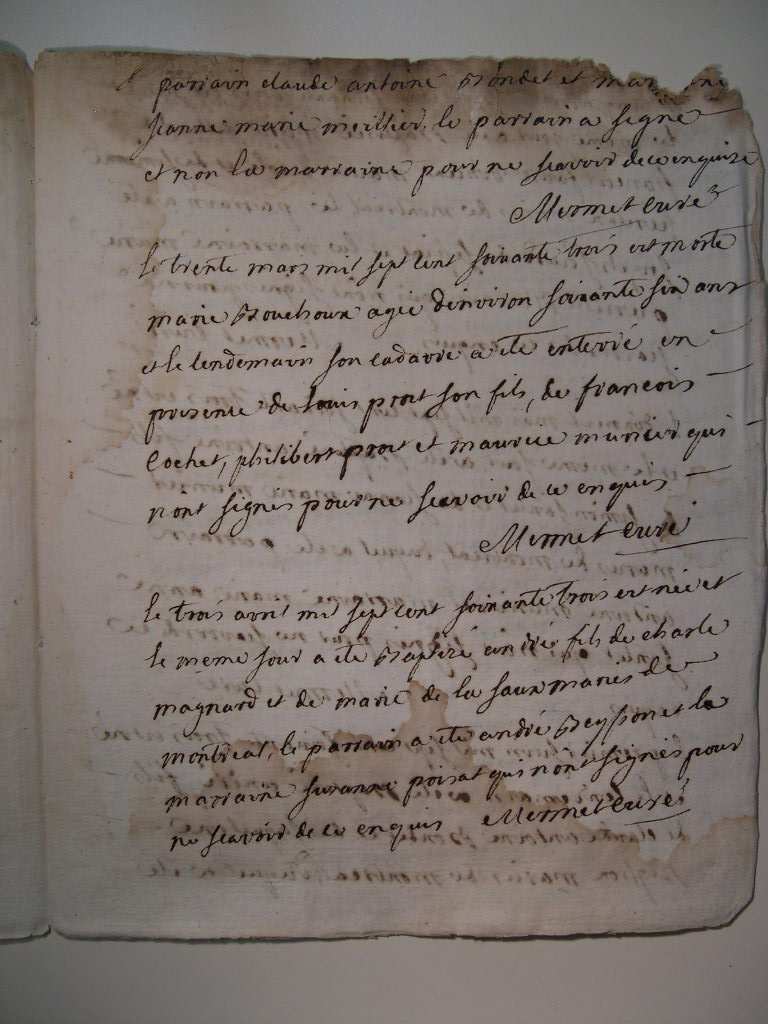 parrain claude antoine Bondet et mar ne
jeanne marie meillier, le parrain a signe
et non la marraine pour ne scavoir de ce enquise
Mermet curé
le trente mars mil sept cent soixante trois est morte
marie Bouchoux agée d'environ soixante six ans
et le lendemain son cadavre a ete enterré en
presence de louis prost son fils, de francois
Cochet, philibert prost et maurice munier qui
n'ont signés pour ne scavoir de ce enquis
Mermet curé
le trois avril mil sept cent soixante trois est née et
le meme jour a ete Baptizé andré fils de charle
magnard et de marie de la faux mariés de
montreal, le parrain a ete andré Beysson et la
marraine suzanne poisat qui n'ont signés pour
ne scavoir de ce enquis Mermet curé